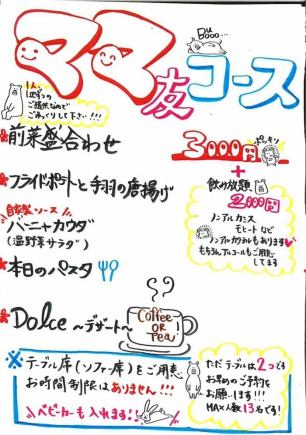 ママ友コース
Buooo...
1人1皿ずつの
ご提供なので
ごゆっくりして下さい!!!
*前菜盛合わせ
3000円 ポッキリ
+
飲み放題
2000円
*フライドポテトと手羽の唐揚げ
自家製ソース
バーニャカウダ
(温野菜サラダ)
ノンアルカシス
モヒートなど
ノンアルカクテルもあります♥
もちろんアルコールもご用意
してます
*本日のパスタ
*Dolce ~デザート~
Coffee
OR
Tea
※テーブル席(ソファー席)をご用意
お時間制限はありません!!!
ベビーカーも入れます!!
ただテーブルは2つです
お早めのご予約を
お願いします!!!
MAX人数13名です!